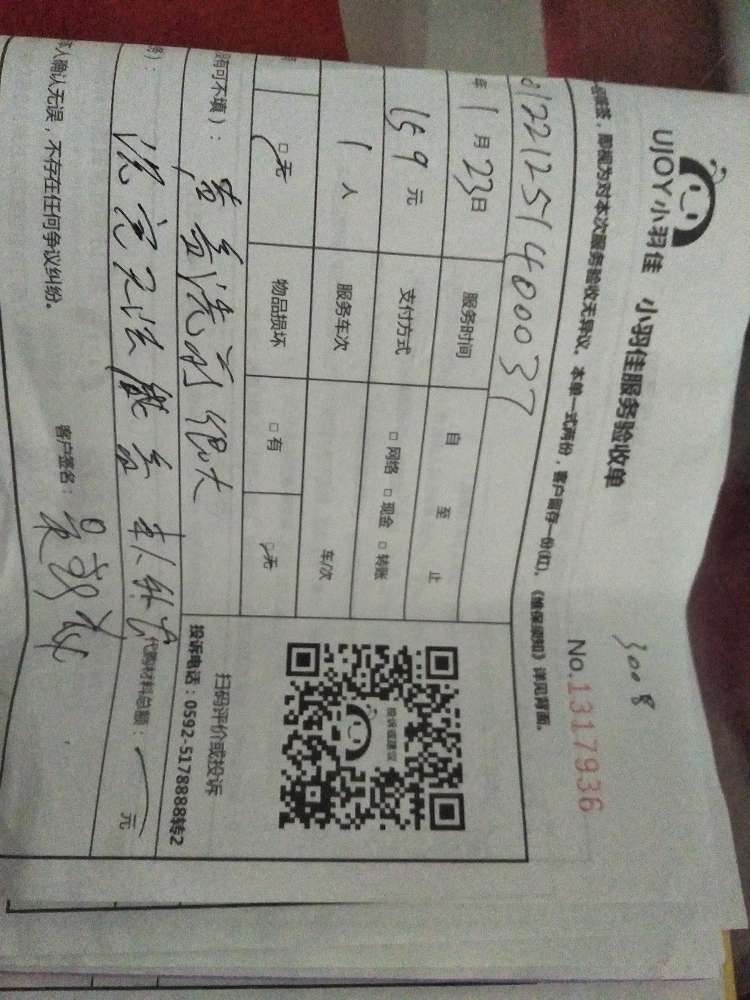 UJOY小羽佳 小羽佳服务验收单
3008
No.1317936
即视为对本次服务验收无异议。本单一式两份，客户留存一份(红)，《维保须知》详见背面。
1221251400037
年 1 月 23日 服务时间 自 至 止
159 元 支付方式 □ 网络 □ 现金 □ 转账
1 人 服务车次 车/次
□ 无 物品损坏 □ 有 □ 无
有可不填）：
洗前很大
代购材料总额： 元
扫码评价或投诉
投诉电话：0592-5178888转2
人确认无误，不存在任何争议纠纷。
客户签名：